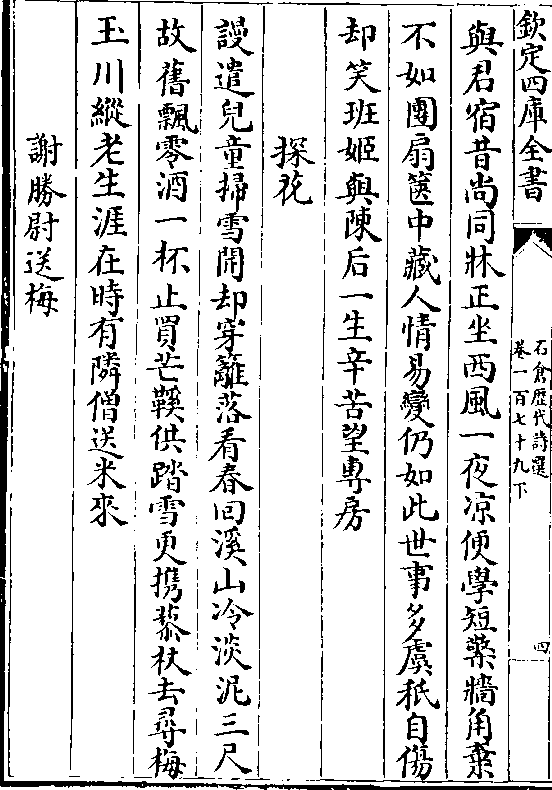 欽定四庫全書
石倉歷代詩選
卷一百七十九下
四
與君宿昔尚同牀正坐西風一夜凉便學短檠牆角棄
不如團扇篋中藏人情易變仍如此世事多虞秖自傷
却笑班姬與陳后一生辛苦望專房
探花
謾遣兒童掃雪開却穿籬落看春回溪山冷淡泥三尺
故舊飄零酒一杯止買芒鞵供踏雪更携藜杖去尋梅
玉川縱老生涯在時有隣僧送米來
謝勝尉送梅